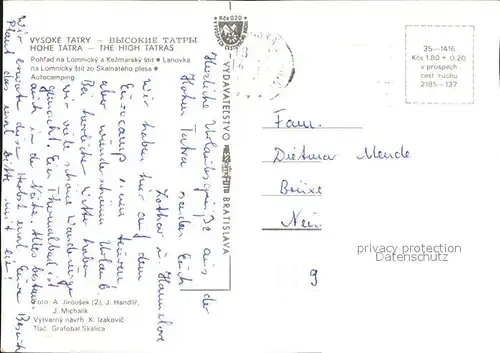 VYSOKÉ TATRY – ВЫСОКИЕ ТАТРЫ
HOHE TATRA – THE HIGH TATRAS
Pohľad na Lomnický a Kežmarský štít ● Lanovka
na Lomnický štít zo Skalnatého plesa ●
Autocamping
Kčs 0,20
VYDAVATEĽSTVO
BRATISLAVA
35—1416
Kčs 1,80 + 0,20
v prospech
cest. ruchu
2185-137
Herzliche Urlaubsgrüße aus der
Hohen Tatra senden Euch
Lothar u. Hannelore
Wir haben hier auf dem
Eurocamp einen teuren,
aber wunderschönen Urlaub.
Bei herrlichem Wetter haben
wir viele schöne Wanderungen
gemacht. Ein Thermalbad ist
auch in der Nähe. Alles bestens.
Wir erwarten diesen Herbst mal Euren Besuch
Plant das mal bitte mit ein!
Fam.
Dietmar Mende
Neu
9
Foto: A. Jiroušek (2), J. Handlíř,
J. Michalík
Výtvarný návrh K. Izakovič
Tlač. Grafobal Skalica
copyright protection
oldthing.de